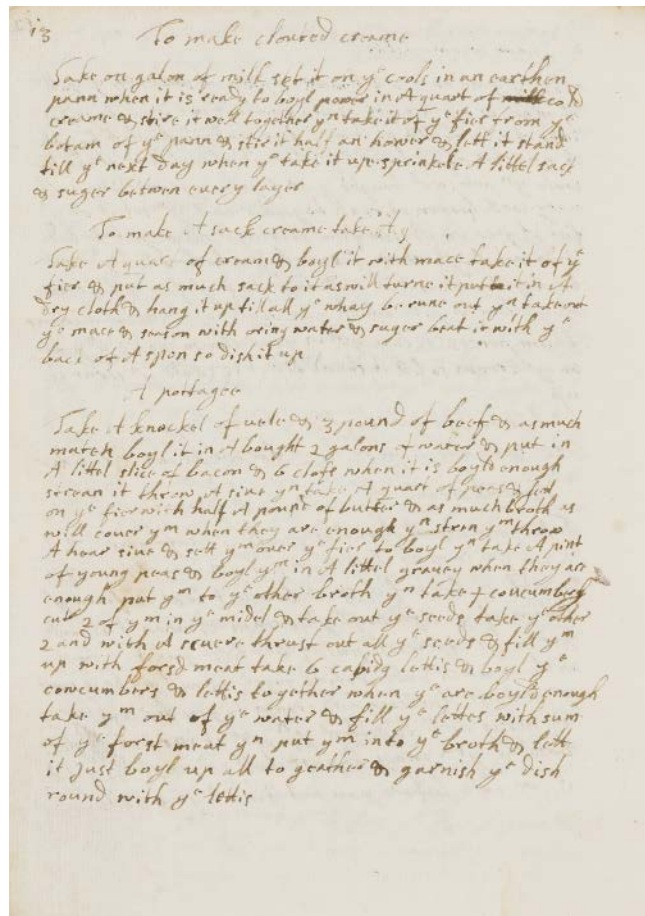 13
To make cloured creame
Take on galon of milk set it on ye cools in an earthen
pann when it is ready to boyl power in A quart of
creame & stire it well together yn take it of ye fier from ye
botam of ye pann & stir it half an hower & lett it stand
till ye next day when ye take it up sprinkele A littel sack
& suger betwen every layer
To make A sack creame take
Take A quart of cream & boyl it with mace take it of ye
fier & put as much sack to it as will turne it putt it in A
dry cloth & hang it up till all ye whay be rune out yn take out
ye mace & season with oring water & suger beat it with ye
back of A spon so dish it up
A pottagee
Take A knockel of vele & 3 pound of beef & as much
muten boyl it in A bought 2 galons of water & put in
A littel slice of bacon & 6 clofs when it is boyld enough
strean it throw A sive yn take A quart of peas & sett
on ye fier with half A pound of butter & as much broth as
will cover ym when they are enough yn stren ym throw
A hear sive & sett ym over ye fier to boyl yn take A pint
of young peas & boyl ym in A littel gravey when they are
enough put ym to ye other broth yn take 4 coucumbers
cut 2 of ym in ye midel & take out ye seeds take ye other
2 and with A scuere thrust out all ye seeds & fill ym
up with forsd meat take 6 cabidg lettis & boyl ye
cowcumbers & lettis together when ye are boyld enough
take ym out of ye water & fill ye lettes with sum
of ye forst meat yn put ym into ye broth & lett
it just boyl up all to geather & garnish ye dish
round with ye lettis